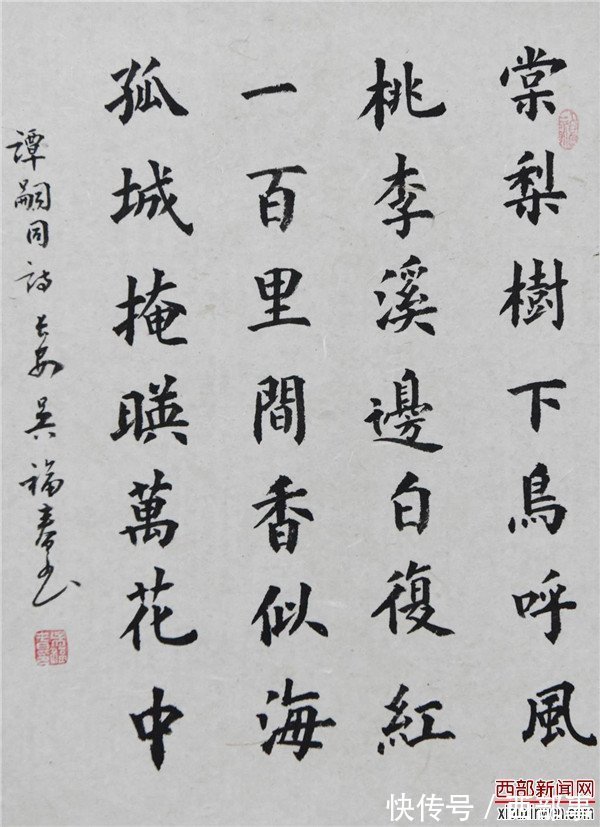 棠梨樹下鳥呼風
桃李溪邊白復紅
一百里間香似海
孤城掩暎萬花中
譚嗣同詩 长安吴福春书
西部新闻网
快传号 /